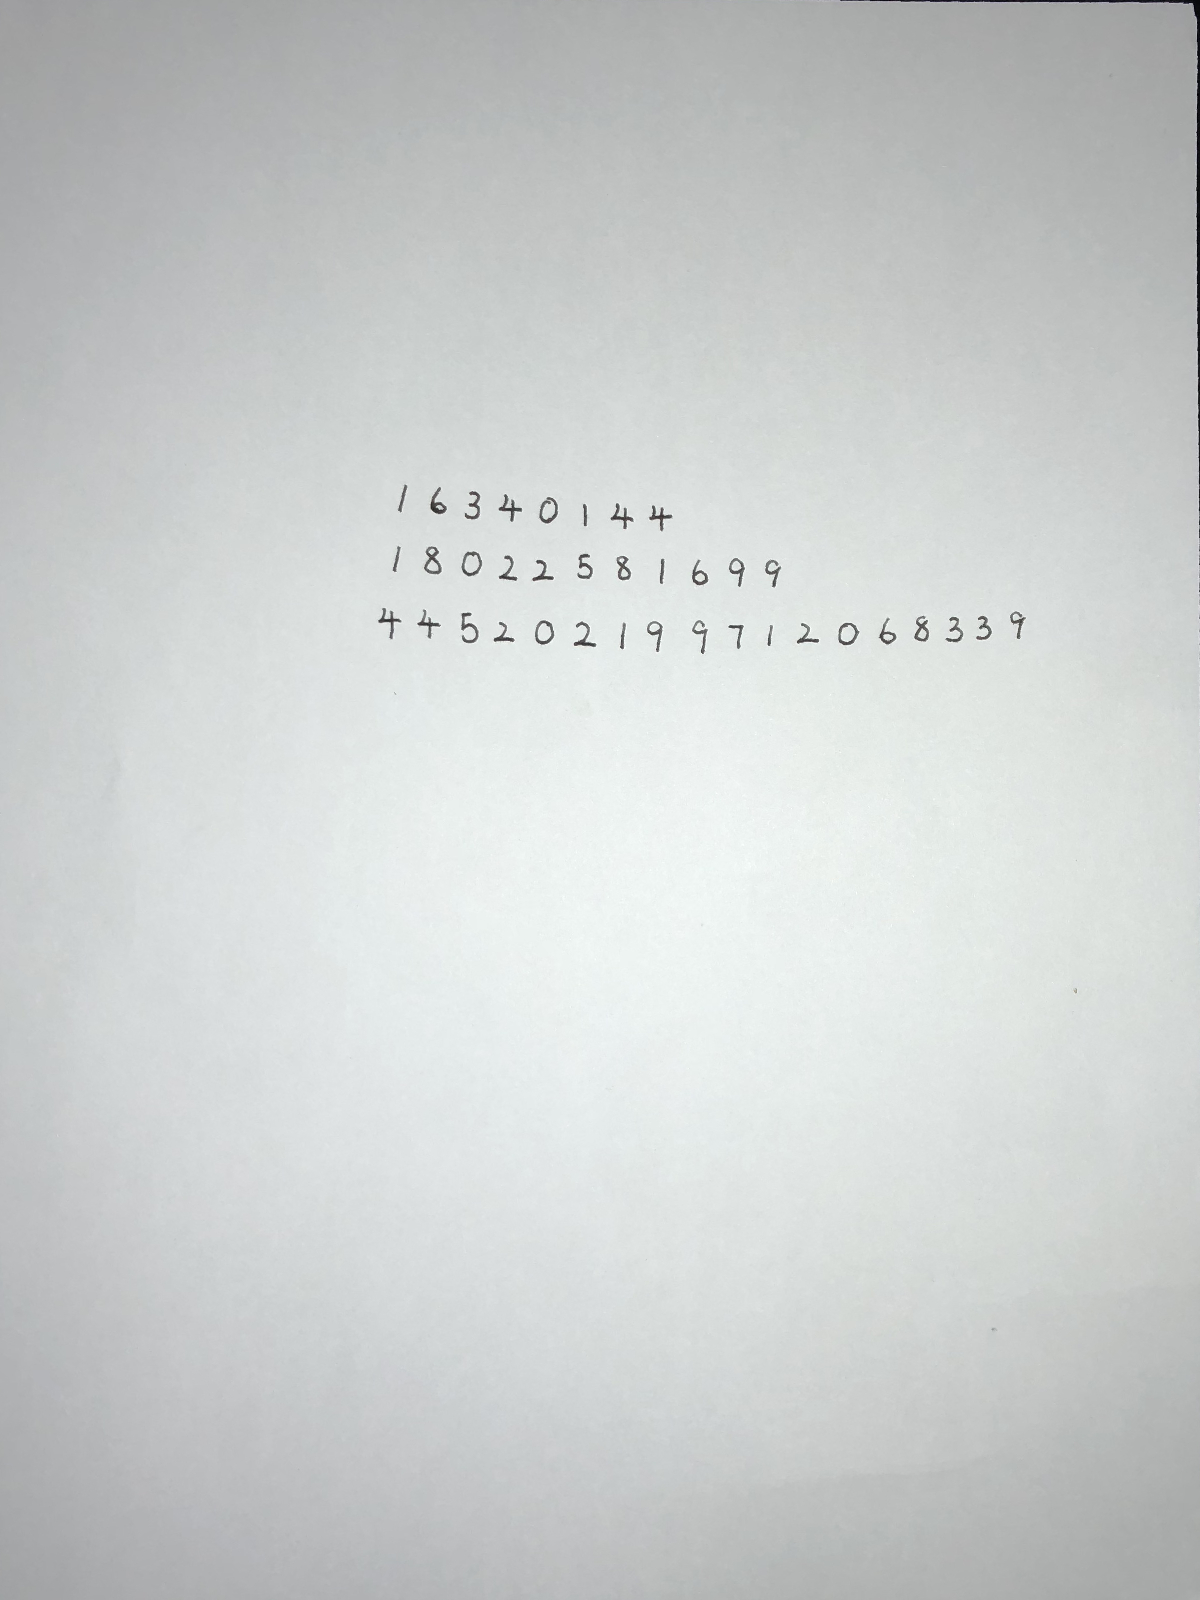 1 6 3 4 0 1 4 4
1 8 0 2 2 5 8 1 6 9 9
4 4 5 2 0 2 1 9 9 7 1 2 0 6 8 3 3 9